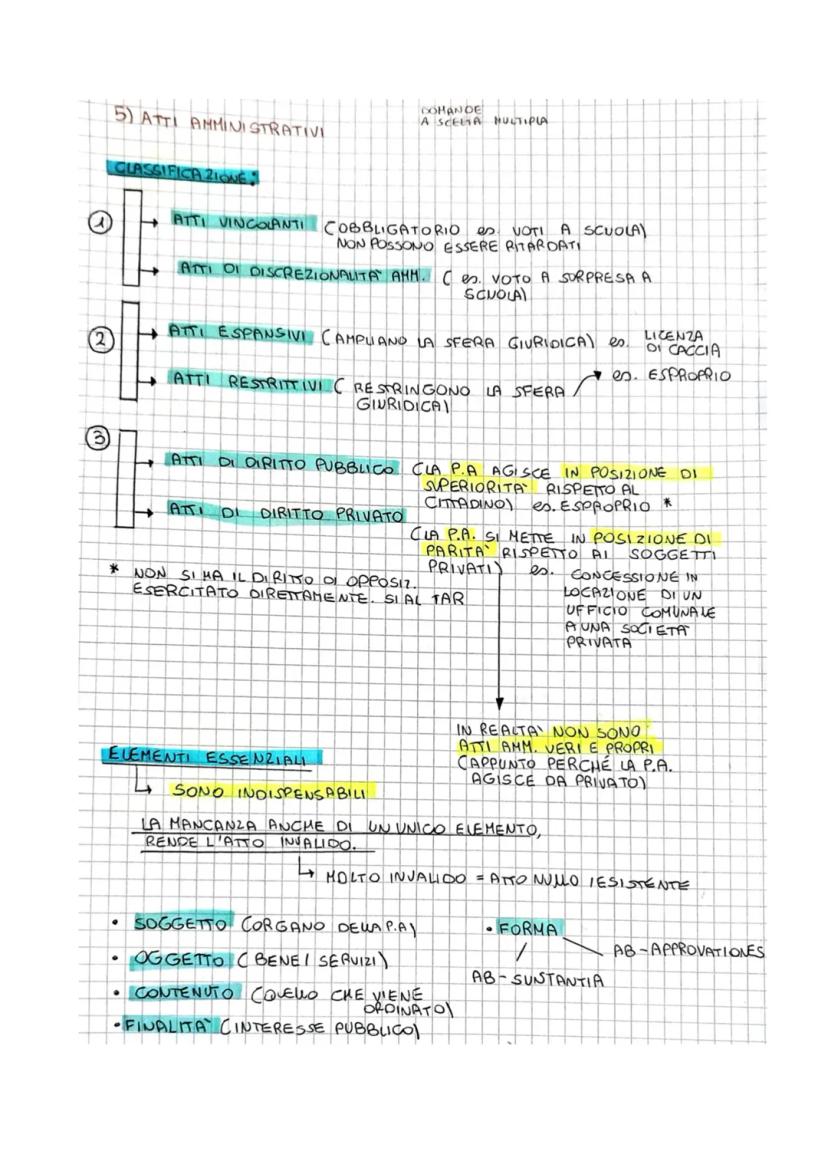 5) ATTI AMMINISTRATIVI
DOMANDE
A SCELTA MULTIPLA
CLASSIFICAZIONE:
1
→ ATTI VINCOLANTI (OBBLIGATORIO es. VOTI A SCUOLA)
NON POSSONO ESSERE RITARDATI
→ ATTI DI DISCREZIONALITA' AMM. ( es. VOTO A SORPRESA A
SCUOLA)
2
→ ATTI ESPANSIVI (AMPLIANO LA SFERA GIURIDICA) es. LICENZA
DI CACCIA
→ ATTI RESTRITTIVI ( RESTRINGONO LA SFERA → es. ESPROPRIO
GIURIDICA)
3
→ ATTI DI DIRITTO PUBBLICO (LA P.A AGISCE IN POSIZIONE DI
SUPERIORITA' RISPETTO AL
CITTADINO) es. ESPROPRIO *
→ ATTI DI DIRITTO PRIVATO
(LA P.A. SI METTE IN POSIZIONE DI
PARITA' RISPETTO AI SOGGETTI
PRIVATI) es. CONCESSIONE IN
LOCAZIONE DI UN
UFFICIO COMUNALE
A UNA SOCIETÀ
PRIVATA
* NON SI HA IL DIRITTO DI OPPOSIZ.
ESERCITATO DIRETTAMENTE. SI AL TAR
IN REALTA' NON SONO
ATTI AMM. VERI E PROPRI
(APPUNTO PERCHÉ LA P.A.
AGISCE DA PRIVATO)
ELEMENTI ESSENZIALI
↳ SONO INDISPENSABILI
LA MANCANZA ANCHE DI UN UNICO ELEMENTO,
RENDE L'ATTO INVALIDO.
↳ MOLTO INVALIDO = ATTO NULLO IESISTENTE
• SOGGETTO (ORGANO DELLA P.A)
• OGGETTO ( BENE/ SERVIZI)
• CONTENUTO (QUELLO CHE VIENE
ORDINATO)
• FINALITA' (INTERESSE PUBBLICO)
• FORMA
AB-APPROVATIONES
AB-SUNTANTIA